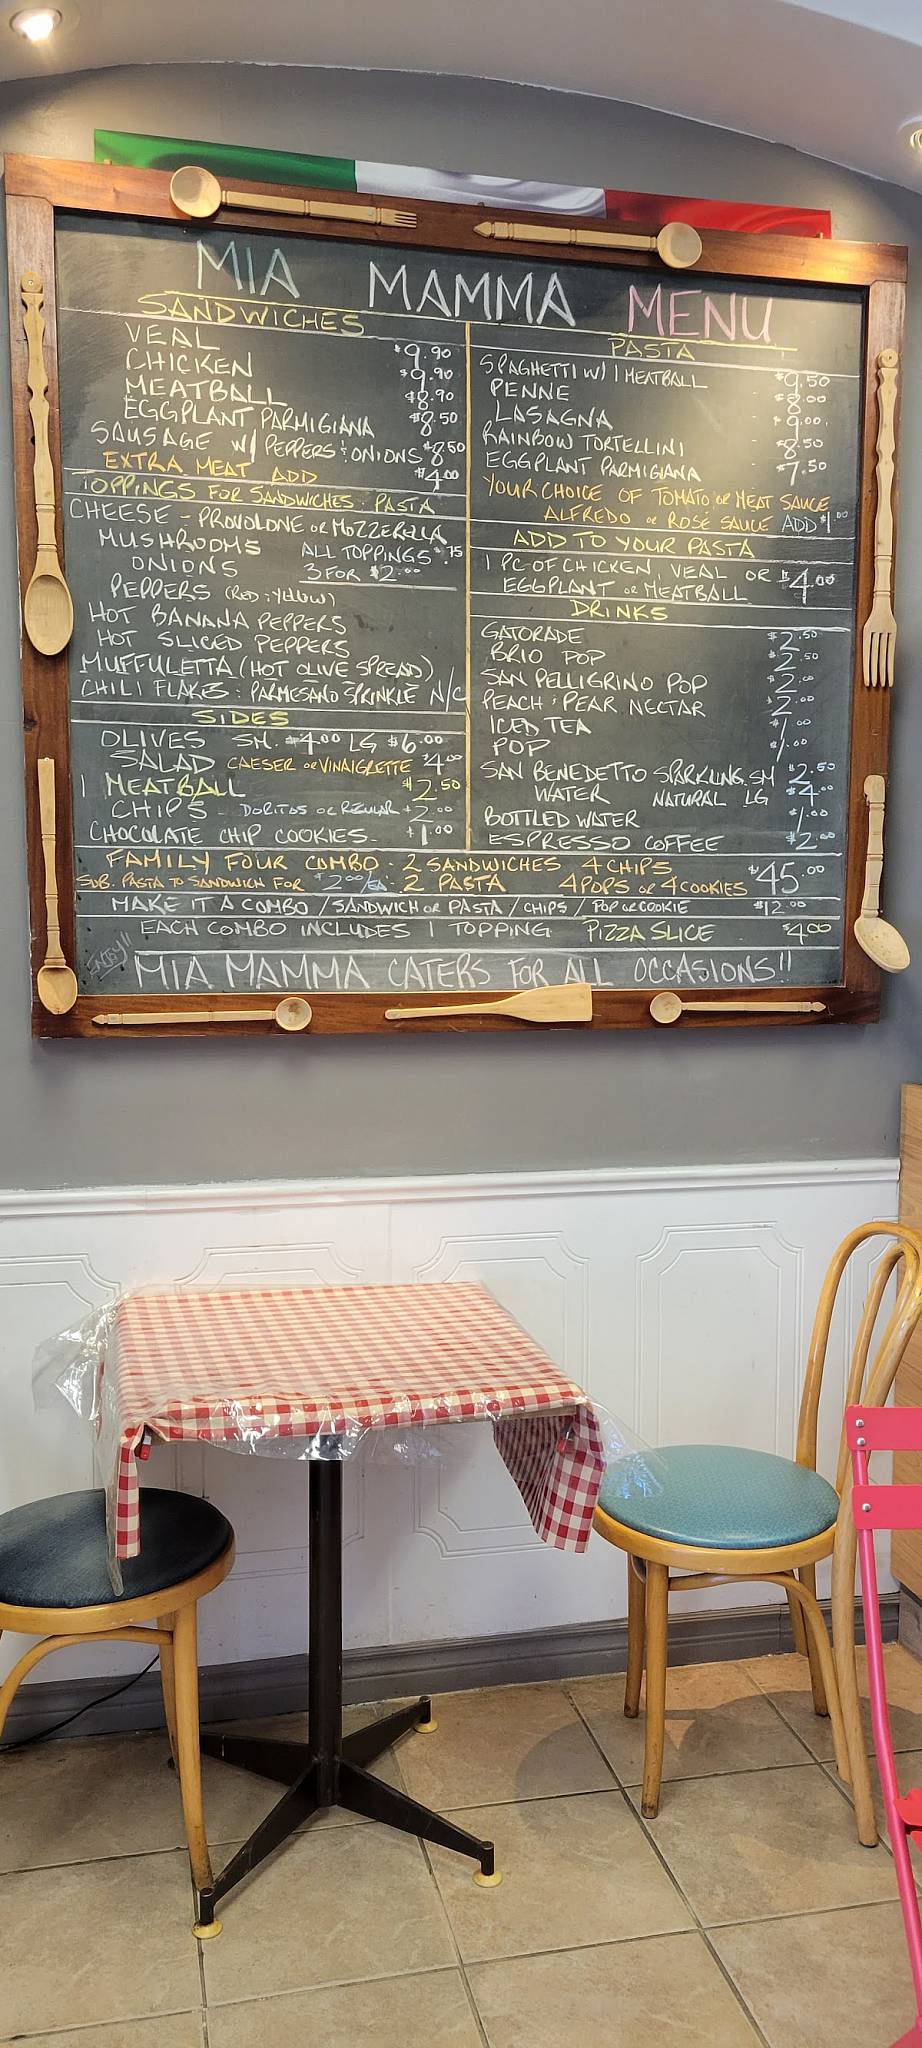 MIA MAMMA MENU
SANDWICHES
VEAL $9.90
CHICKEN $9.90
MEATBALL $8.90
EGGPLANT PARMIGIANA $8.50
SAUSAGE W/ PEPPERS & ONIONS $8.50
EXTRA MEAT ADD $4.00
TOPPINGS FOR SANDWICHES & PASTA
CHEESE - PROVOLONE OR MOZZERELLA
MUSHROOMS ALL TOPPINGS $.75
ONIONS 3 FOR $2.00
PEPPERS (RED & YELLOW)
HOT BANANA PEPPERS
HOT SLICED PEPPERS
MUFFULETTA (HOT OLIVE SPREAD)
CHILI FLAKES & PARMESANO SPRINKLE N/C
SIDES
OLIVES SM. $4.00 LG $6.00
SALAD CAESER OR VINAIGRETTE $4.00
1 MEATBALL $2.50
CHIPS - DORITOS OR REGULAR $2.00
CHOCOLATE CHIP COOKIES $1.00
PASTA
SPAGHETTI W/ 1 MEATBALL $9.50
PENNE - $8.00
LASAGNA - $9.00
RAINBOW TORTELLINI - $8.50
EGGPLANT PARMIGIANA - $7.50
YOUR CHOICE OF TOMATO OR MEAT SAUCE
ALFREDO OR ROSÉ SAUCE ADD $1.00
ADD TO YOUR PASTA
1 PC OF CHICKEN, VEAL OR $4.00
EGGPLANT OR MEATBALL
DRINKS
GATORADE $2.50
BRIO POP $2.50
SAN PELLIGRINO POP $2.00
PEACH & PEAR NECTAR $2.00
ICED TEA $1.00
POP $1.00
SAN BENEDETTO SPARKLING SM $2.50
WATER NATURAL LG $4.00
BOTTLED WATER $1.00
ESPRESSO COFFEE $2.00
FAMILY FOUR COMBO - 2 SANDWICHES 4 CHIPS $45.00
SUB. PASTA TO SANDWICH FOR $2.00/EA. 2 PASTA 4 POPS OR 4 COOKIES
MAKE IT A COMBO / SANDWICH OR PASTA / CHIPS / POP OR COOKIE $12.00
EACH COMBO INCLUDES 1 TOPPING PIZZA SLICE $4.00
ENJOY!!
MIA MAMMA CATERS FOR ALL OCCASIONS!!